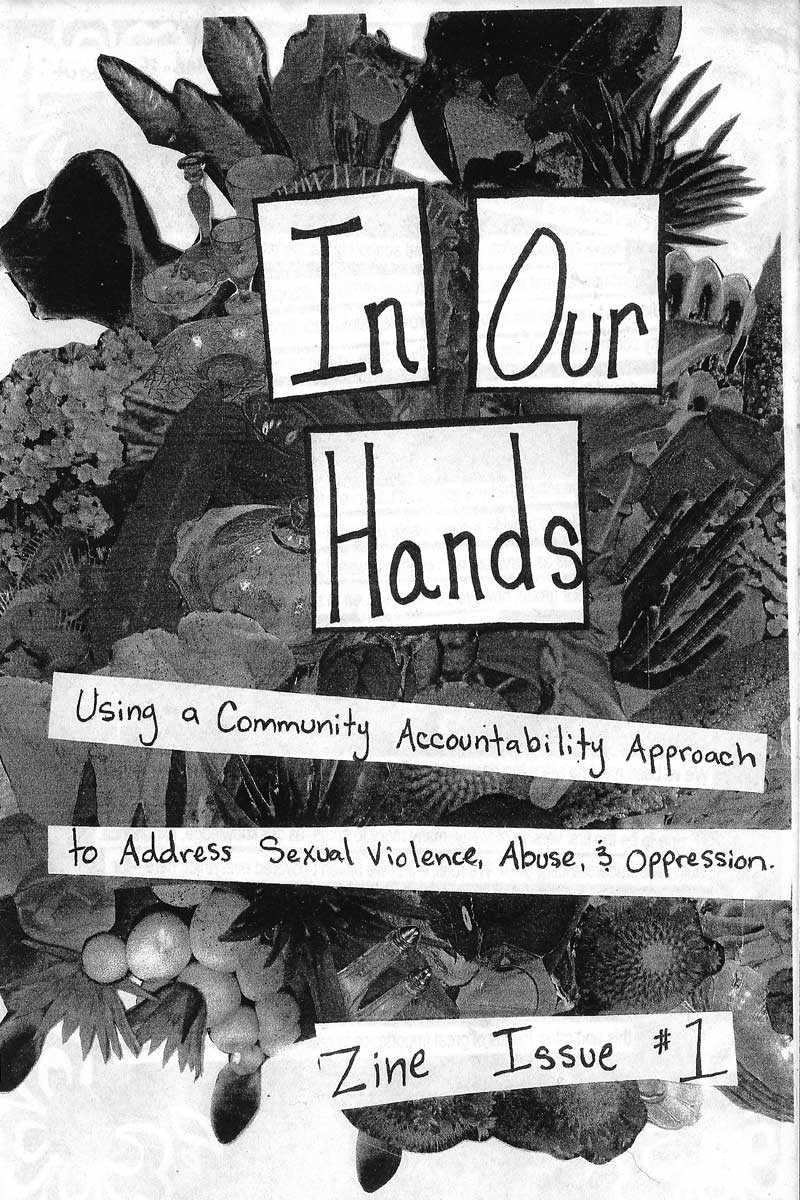 In Our
Hands
Using a Community Accountability Approach
to Address Sexual Violence, Abuse, & Oppression.
Zine Issue #1